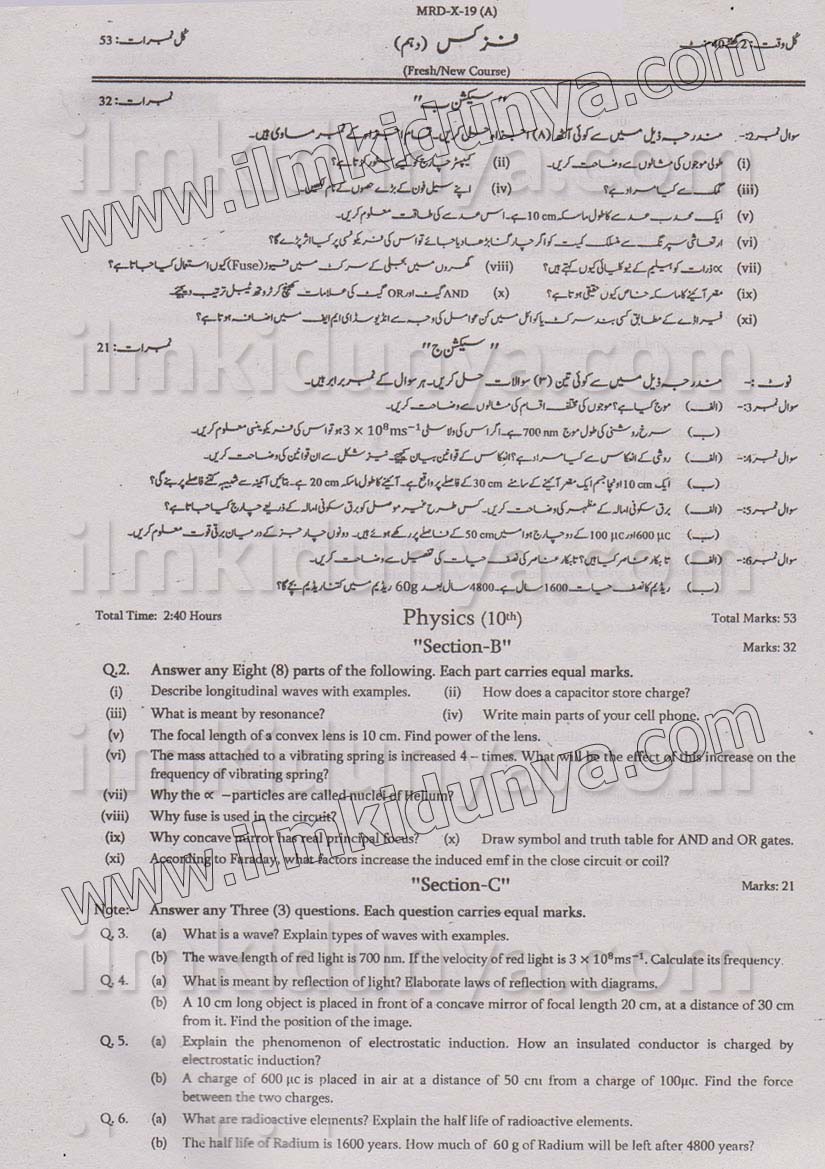 MRD-X-19 (A)
کل نمبرات: 53 فزکس (دہم) کل وقت: 2:40 گھنٹے
(Fresh/New Course)
نمبرات: 32 "سیکشن ب"
سوال نمبر2:- مندرجہ ذیل میں سے کوئی آٹھ (۸) اجزاء حل کریں۔ تمام اجزاء کے نمبر مساوی ہیں۔
(i) طولی موجوں کی مثالوں سے وضاحت کریں۔ (ii) کپیسٹر چارج کو کیسے سٹور کرتا ہے؟
(iii) گمک سے کیا مراد ہے؟ (iv) اپنے سیل فون کے بڑے حصوں کے نام لکھیں۔
(v) ایک محدب عدسے کا طول ماسکہ 10 cm ہے۔ اس عدسے کی طاقت معلوم کریں۔
(vi) ارتعاشی سپرنگ سے منسلک کمیت کو اگر چار گنا بڑھا دیا جائے تو اس کی فریکوئنسی پر کیا اثر پڑے گا؟
(vii) ∝ ذرات کو ہیلیم کے نیوکلیائی کیوں کہتے ہیں؟ (viii) گھروں میں بجلی کے سرکٹ میں فیوز (Fuse) کیوں استعمال کیا جاتا ہے؟
(ix) مقعر آئینے کا ماسکہ خاص کیوں حقیقی ہوتا ہے؟ (x) AND گیٹ اور OR گیٹ کی علامات کھینچ کر ٹروتھ ٹیبل ترتیب دیجئے۔
(xi) فیراڈے کے مطابق کسی بند سرکٹ یا کوائل میں کن عوامل کی وجہ سے انڈیوسڈ ای ایم ایف میں اضافہ ہوتا ہے؟
نمبرات: 21 "سیکشن ج"
نوٹ :- مندرجہ ذیل میں سے کوئی تین (۳) سوالات حل کریں۔ ہر سوال کے نمبر برابر ہیں۔
سوال نمبر3:- (الف) موج کیا ہے؟ موجوں کی مختلف اقسام کی مثالوں سے وضاحت کریں۔
(ب) سرخ روشنی کی طول موج 700 nm ہے۔ اگر اس کی ولاسٹی 3 × 10⁸ms⁻¹ ہو تو اس کی فریکوینسی معلوم کریں۔
سوال نمبر4:- (الف) روشنی کے انعکاس سے کیا مراد ہے؟ انعکاس کے قوانین بیان کیجئے۔ نیز شکل سے ان قوانین کی وضاحت کریں۔
(ب) ایک 10 cm اونچا جسم ایک مقعر آئینے کے سامنے 30 cm کے فاصلے پر واقع ہے۔ آئینے کا طول ماسکہ 20 cm ہے۔ بتائیں آئینہ سے شبیہہ کتنے فاصلے پر بنے گی؟
سوال نمبر5:- (الف) برق سکونی امالہ کے مظہر کی وضاحت کریں۔ کس طرح غیر موصل کو برق سکونی امالہ کے ذریعے چارج کیا جاتا ہے؟
(ب) 600 μC اور 100 μC کے دو چارج ہوا میں 50 cm کے فاصلے پر رکھے ہوئے ہیں۔ دونوں چارجز کے درمیان برقی قوت معلوم کریں۔
سوال نمبر6:- (الف) تابکار عناصر کیا ہیں؟ تابکار عناصر کی نصف حیات کی تفصیل سے وضاحت کریں۔
(ب) ریڈیم کا نصف حیات 1600 سال ہے۔ 4800 سال بعد 60g ریڈیم میں کتنا ریڈیم بچے گا؟
Total Time: 2:40 Hours Physics (10th) Total Marks: 53
"Section-B" Marks: 32
Q.2. Answer any Eight (8) parts of the following. Each part carries equal marks.
(i) Describe longitudinal waves with examples. (ii) How does a capacitor store charge?
(iii) What is meant by resonance? (iv) Write main parts of your cell phone.
(v) The focal length of a convex lens is 10 cm. Find power of the lens.
(vi) The mass attached to a vibrating spring is increased 4 – times. What will be the effect of this increase on the
frequency of vibrating spring?
(vii) Why the ∝ –particles are called nuclei of Helium?
(viii) Why fuse is used in the circuit?
(ix) Why concave mirror has real principal focus? (x) Draw symbol and truth table for AND and OR gates.
(xi) According to Faraday, what factors increase the induced emf in the close circuit or coil?
"Section-C" Marks: 21
Note: Answer any Three (3) questions. Each question carries equal marks.
Q. 3. (a) What is a wave? Explain types of waves with examples.
(b) The wave length of red light is 700 nm. If the velocity of red light is 3 × 10⁸ms⁻¹. Calculate its frequency.
Q. 4. (a) What is meant by reflection of light? Elaborate laws of reflection with diagrams.
(b) A 10 cm long object is placed in front of a concave mirror of focal length 20 cm, at a distance of 30 cm
from it. Find the position of the image.
Q. 5. (a) Explain the phenomenon of electrostatic induction. How an insulated conductor is charged by
electrostatic induction?
(b) A charge of 600 μc is placed in air at a distance of 50 cm from a charge of 100μc. Find the force
between the two charges.
Q. 6. (a) What are radioactive elements? Explain the half life of radioactive elements.
(b) The half life of Radium is 1600 years. How much of 60 g of Radium will be left after 4800 years?
www.ilmkidunya.com
www.ilmkidunya.com
ilmkidunya.com
ilmkidunya.com
ilmkidunya.com
ilmkidunya.com
ilmkidunya.com